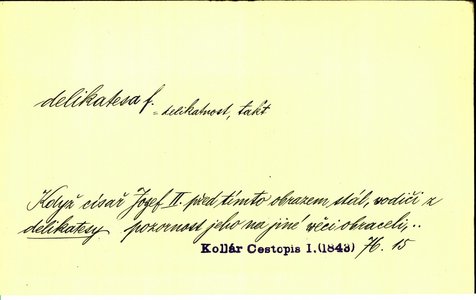 delikatesa f.
= delikatnost, takt
Když císař Josef II. před tímto obrazem stál, vodiči z
delikatesy pozornost jeho na jiné věci obraceli,..
Kollár Cestopis I.(1843) 76. 15